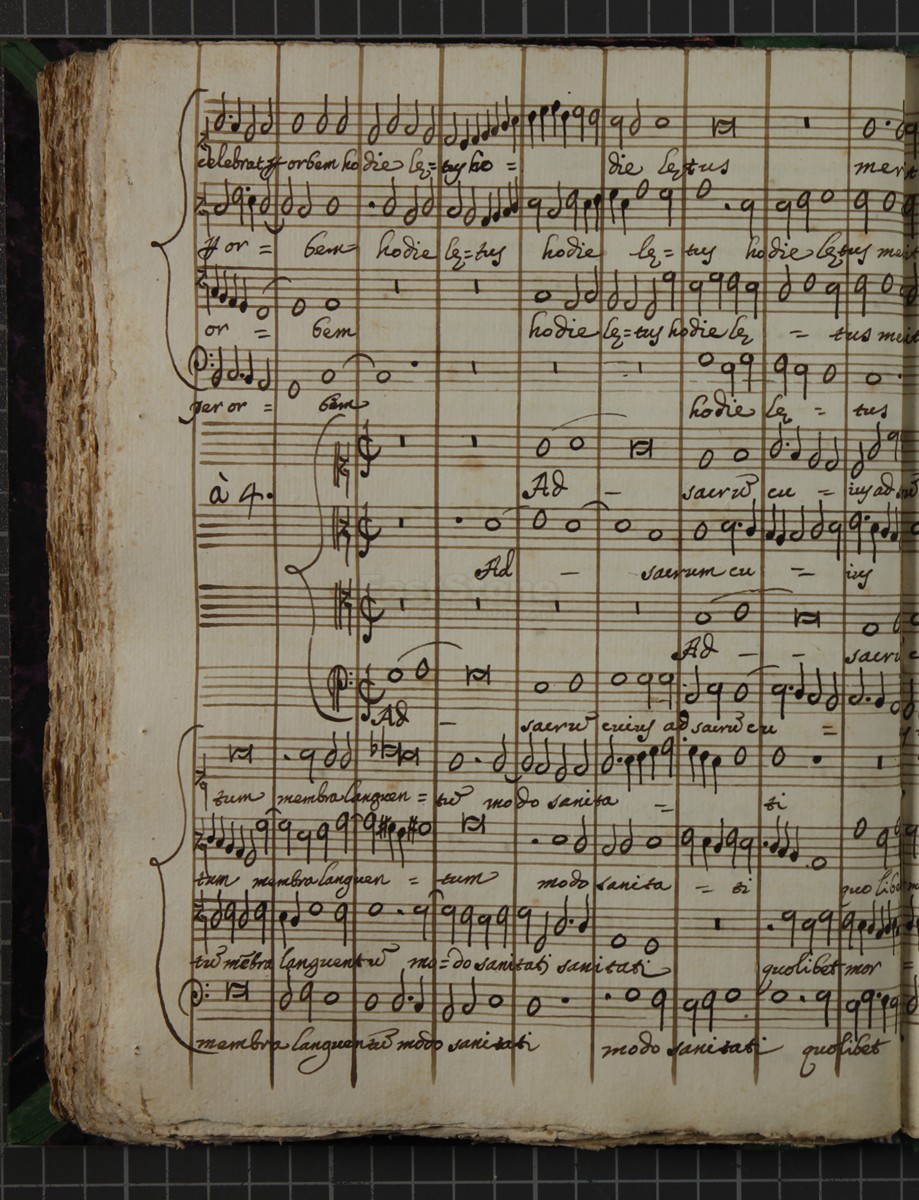 celebrat ꝑ orbem hodie lę=tus ho = die lętus meri
ꝑ or = bem hodie lę=tus hodie lę= tus hodie lętus meri
or = bem hodie lę=tus hodie lę = tus meri
per or = bem hodie lę = tus
à 4. Ad — sacrū cu = ius ad
Ad — sacrum cu = ius
Ad — — sacrū
Ad — sacrū cuius ad sacrū cu =
tum membra languen = tū modo sanita = ti
tum membra languen = tum modo sanita = ti quo libet
tū mēbra languentū mo=do sanitati sanitati quolibet mor =
membra languentū modo sanitati modo sanitati quolibet